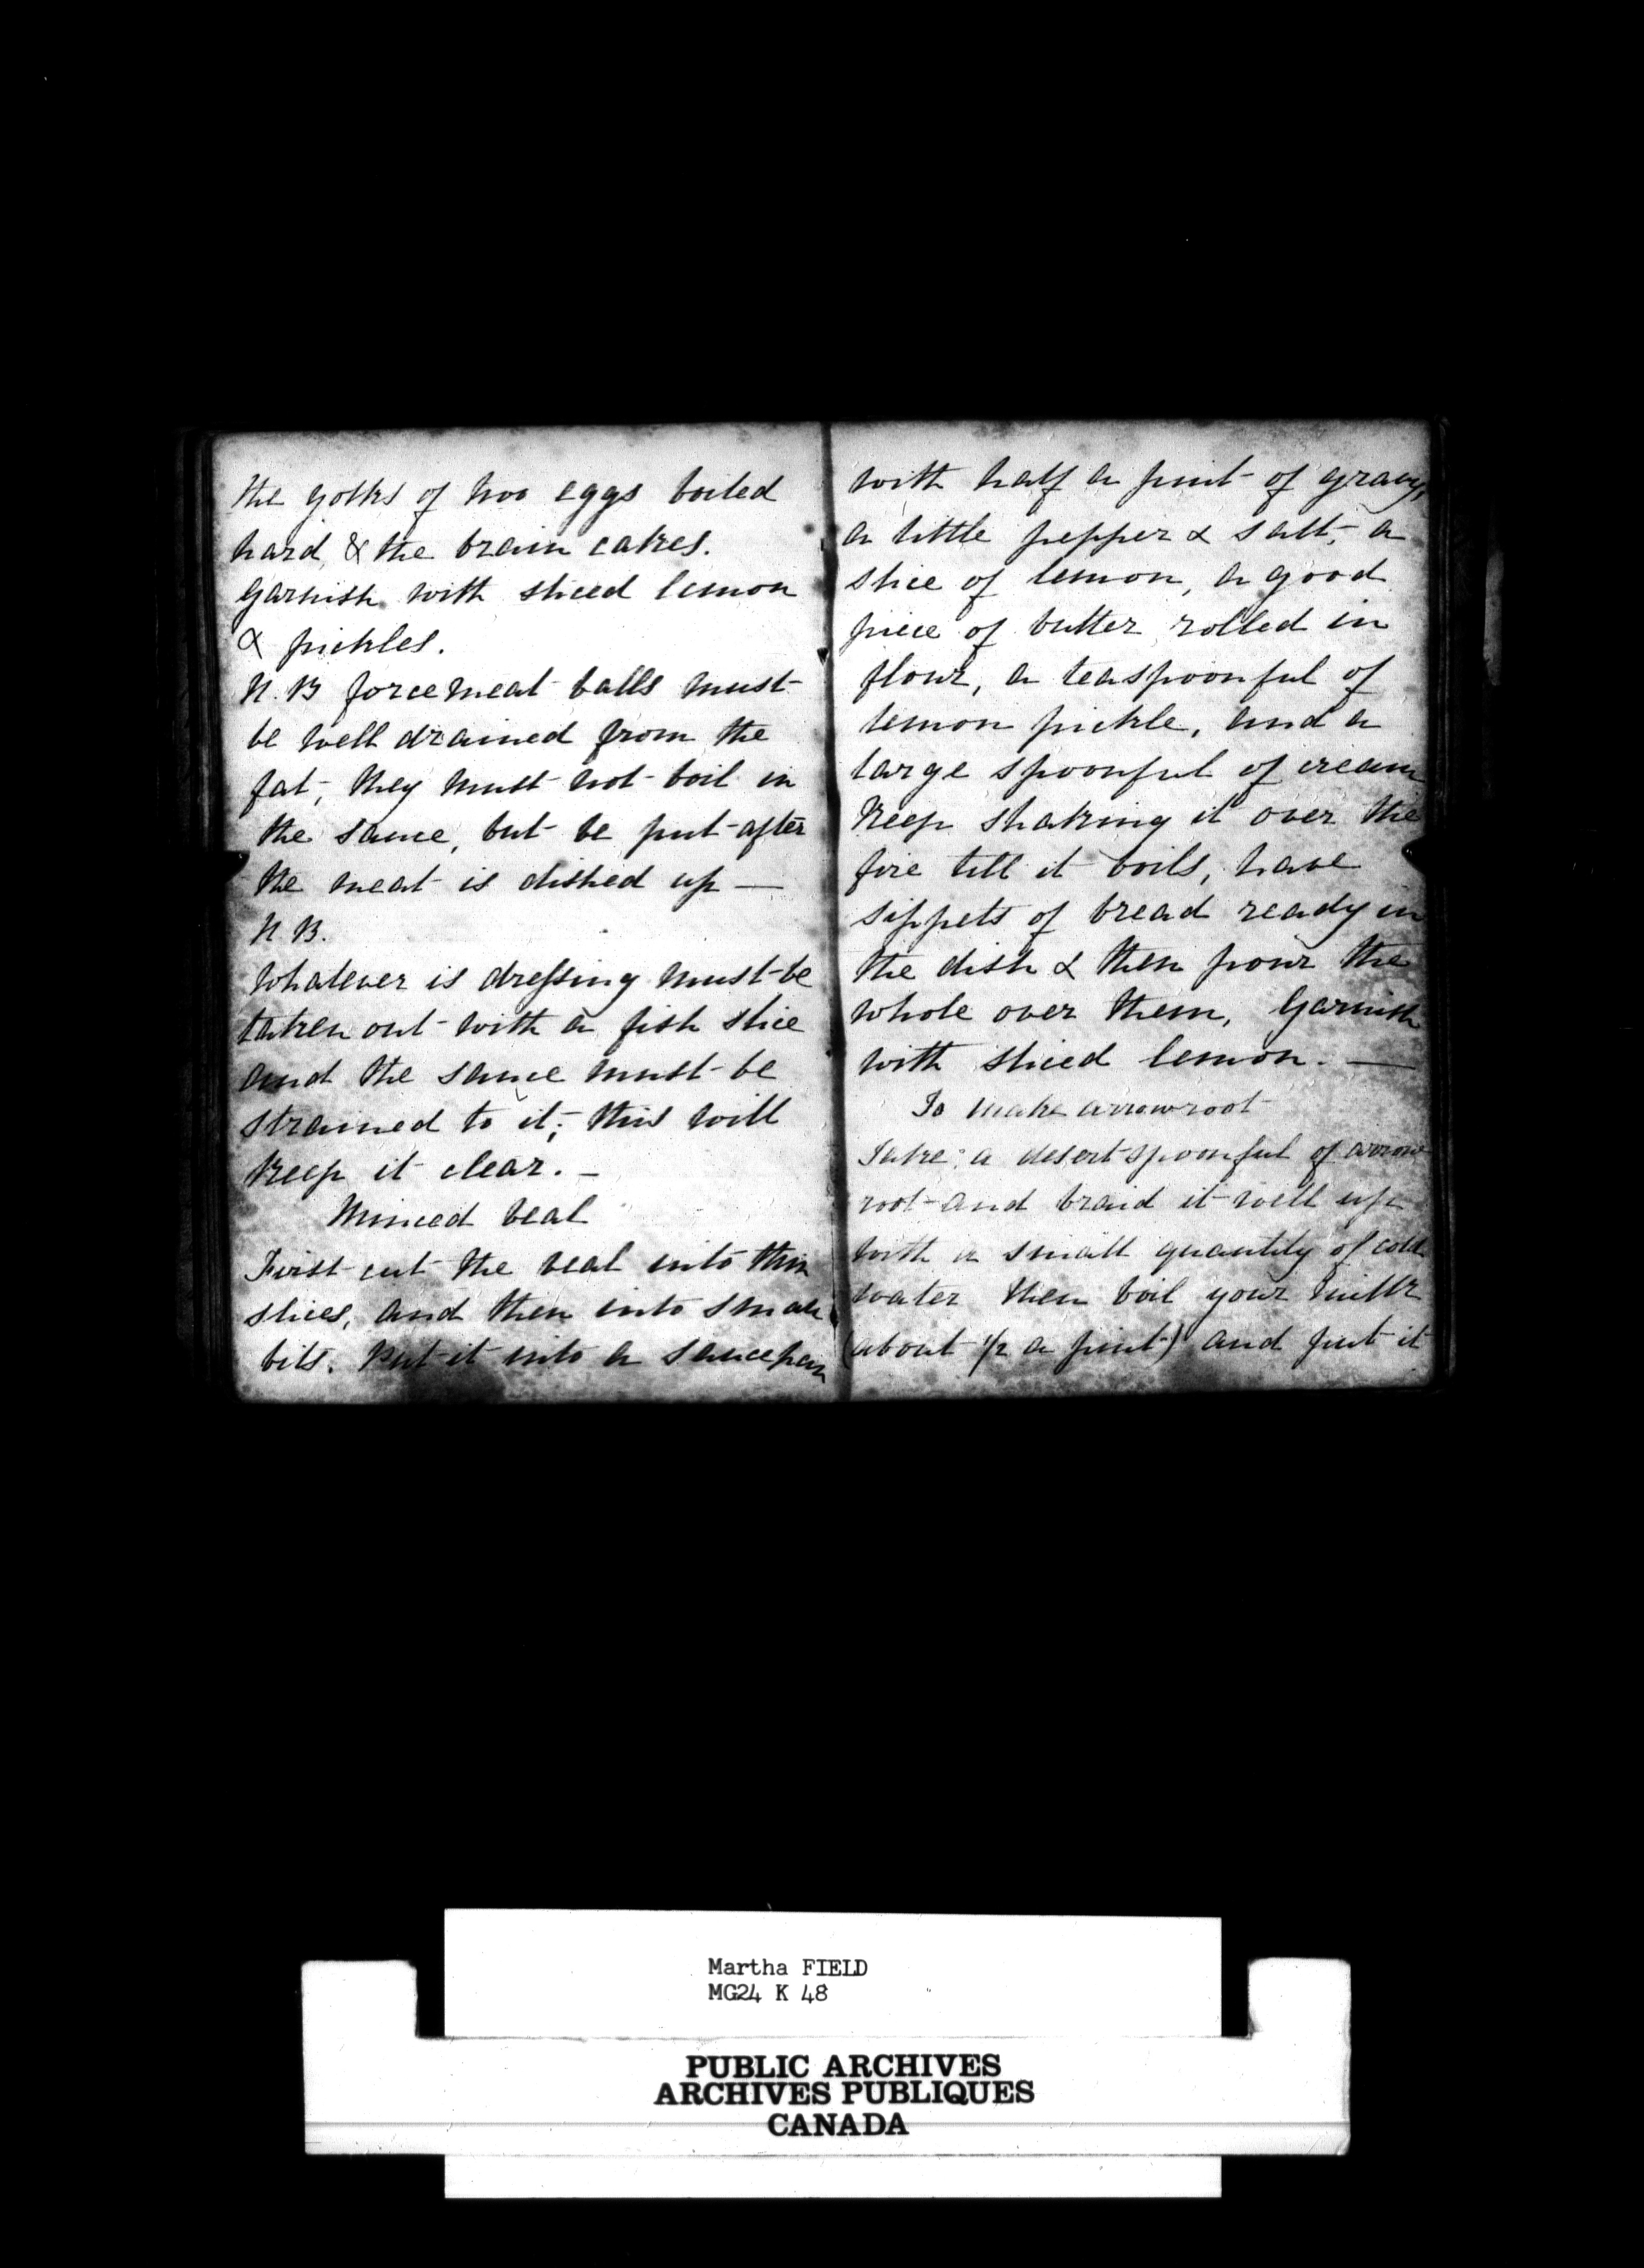 the yolks of two eggs boiled
hard, & the brain cakes.
Garnish with sliced lemon
& pickles.
N.B forcemeat balls must
be well drained from the
fat; they must not boil in
the sauce, but be put after
the meat is dished up —
N.B.
Whatever is dressing must be
taken out with a fish slice
and the sauce must be
strained to it; this will
keep it clear. —
Minced veal
First cut the veal into thin
slices, and then into small
bits. Put it into a saucepan
with half a pint of gravy,
a little pepper & salt, a
slice of lemon, a good
piece of butter rolled in
flour, a teaspoonful of
lemon pickle, and a
large spoonful of cream
Keep shaking it over the
fire till it boils, have
sippets of bread ready in
the dish & then pour the
whole over them, Garnish
with sliced lemon. —
To make arrowroot
Take a desert spoonful of arrow
root and braid it well up
with a small quantity of cold
water then boil your milk
(about 1/2 a pint) and put it
Martha FIELD
MG24 K 48
PUBLIC ARCHIVES
ARCHIVES PUBLIQUES
CANADA